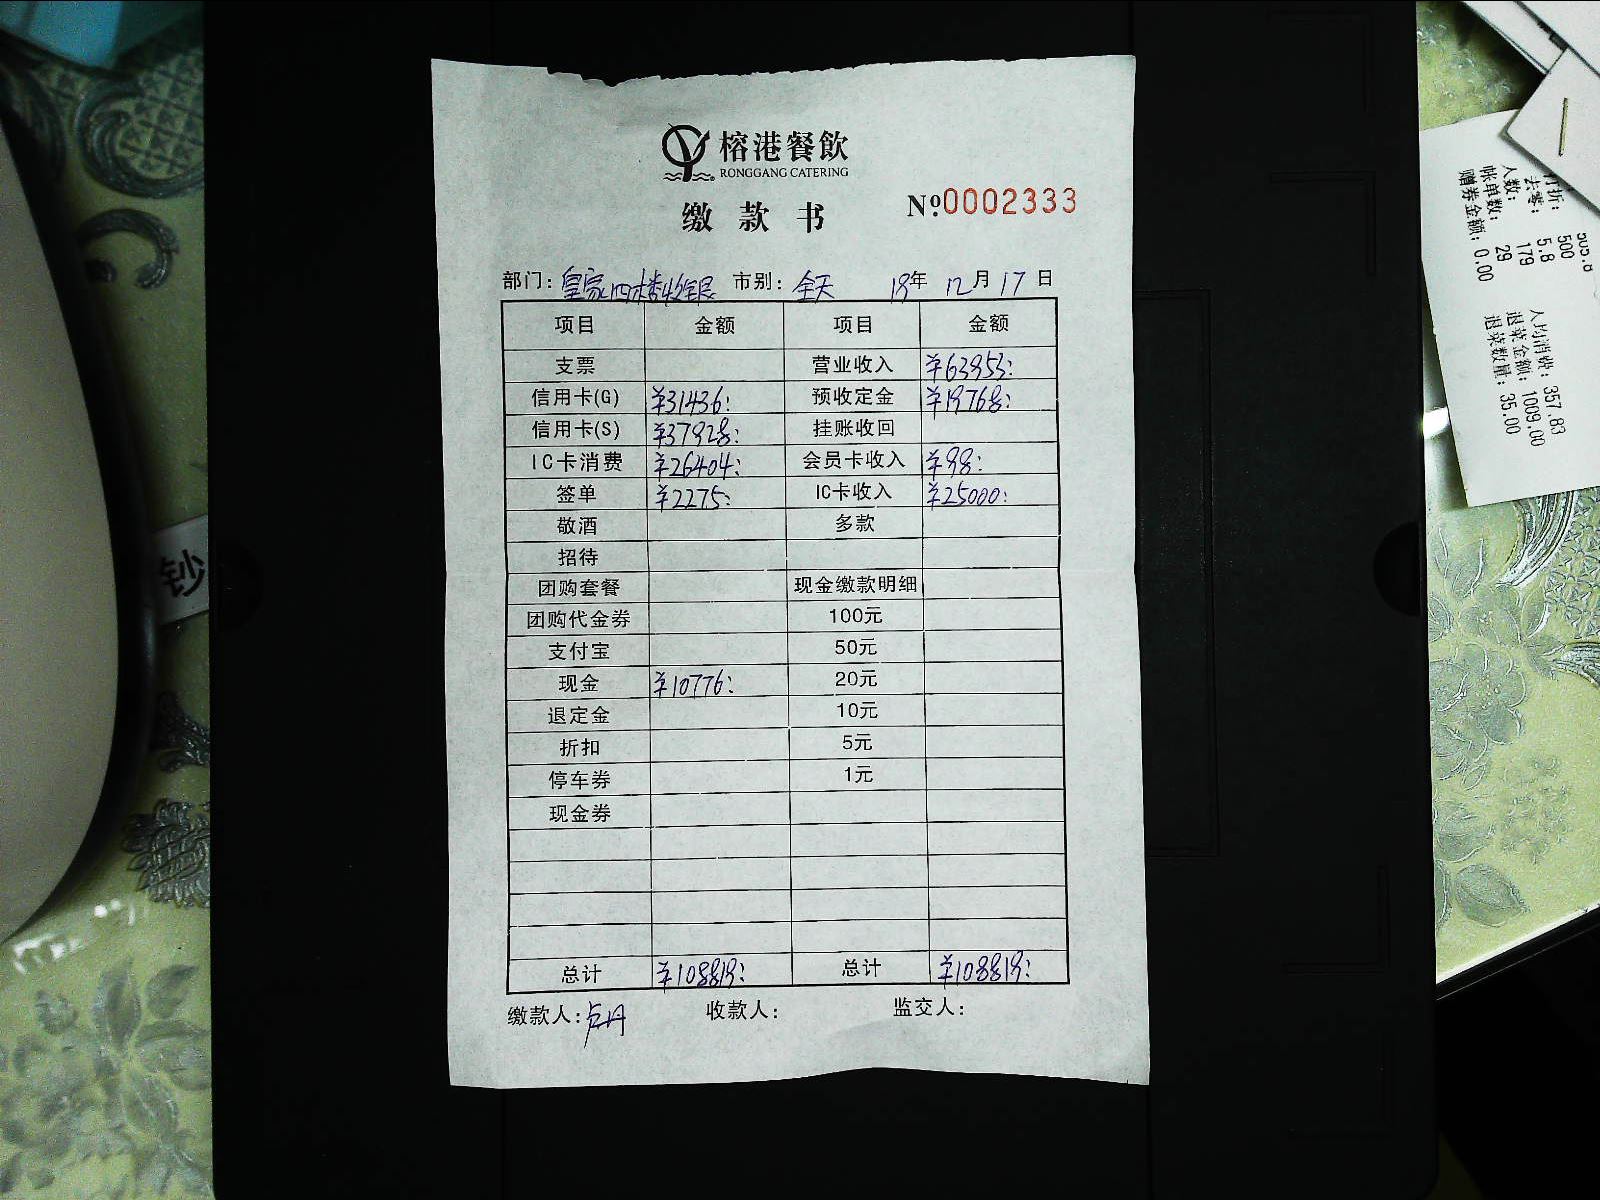 榕港餐飲
RONGGANG CATERING
缴款书
№0002333
部门：皇家四楼收银 市别：全天 18年 12月17日
项目 金额 项目 金额
支票 营业收入 ¥63953:
信用卡(G) ¥31436: 预收定金 ¥19768:
信用卡(S) ¥37928: 挂账收回
IC卡消费 ¥26404: 会员卡收入 ¥98:
签单 ¥2275: IC卡收入 ¥25000:
敬酒 多款
招待
团购套餐 现金缴款明细
团购代金券 100元
支付宝 50元
现金 ¥10776: 20元
退定金 10元
折扣 5元
停车券 1元
现金券
总计 ¥108819: 总计 ¥108819:
缴款人：卢丹 收款人： 监交人：
钞
505.8
打折： 500
去零： 5.8
人数： 179
帐单数： 29
赠券金额： 0.00
人均消费： 357.83
退菜金额： 1009.00
退菜数量： 35.00